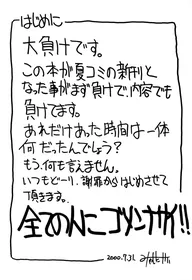 はじめに
大負けです。
この本が夏コミの新刊と
なった事がまず負けで、内容でも
負けてます。
あれだけあった時間は一体
何だったんでしょう?
もう、何も言えません。
いつもどーり、謝罪からはじめさせて
頂きます。
全てのんにゴメンナサイ!!
2000.7.31.